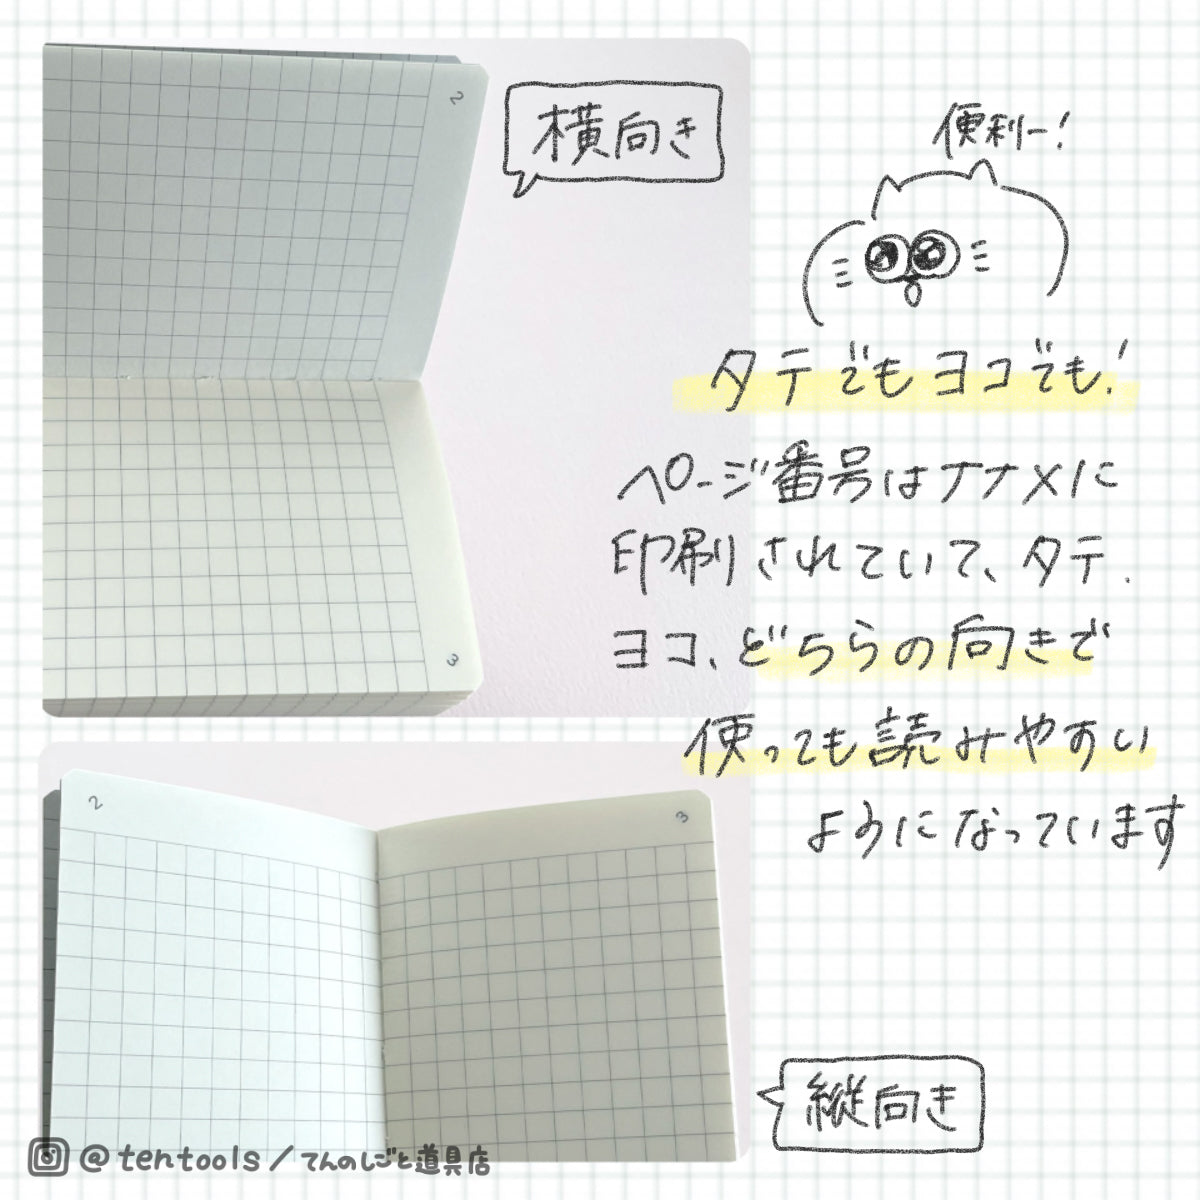 2
横向き
3
便利ー!
タテでもヨコでも!
ページ番号はナナメに
印刷されていて、タテ.
ヨコ、どちらの向きで
使っても読みやすい
ようになっています
2
3
縦向き
@tentools/てんのしごと道具店